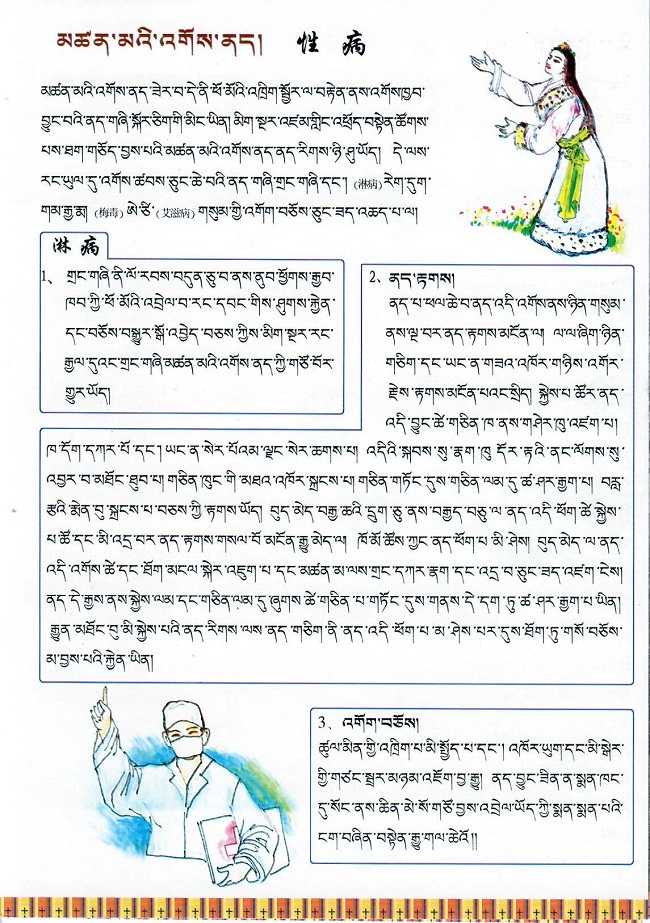 མཚན་མའི་འགོས་ནད། 性病
མཚན་མའི་འགོས་ནད་ཟེར་བ་དེ་ནི་ཕོ་མོའི་འཁྲིག་སྦྱོར་ལ་བརྟེན་ནས་འགོས་ཁྱབ་
བྱུང་བའི་ནད་གཞི་སྐོར་ཅིག་གི་མིང་ཡིན། མིག་སྔར་འཛམ་གླིང་འཕྲོད་བསྟེན་ཚོགས་
པས་ཐག་གཅོད་བྱས་པའི་མཚན་མའི་འགོས་ནད་ནད་རིགས་ཉི་ཤུ་ཡོད། དེ་ལས་
རང་ཡུལ་དུ་འགོས་ཚབས་ཅུང་ཆེ་བའི་ནད་གཞི་གྲང་གཞི་དང་། (淋病) རེག་དུག་
གམ་རྒྱ་རྨ། (梅毒) ཨེ་ཙི་ (艾滋病) གསུམ་གྱི་འགོག་བཅོས་ཅུང་ཟད་འཆད་པ་ལ།
淋病
1、 གྲང་གཞི་ནི་ལོ་རབས་བདུན་ཅུ་བ་ནས་ནུབ་ཕྱོགས་རྒྱབ་
ཁབ་ཀྱི་ཕོ་མོའི་འབྲེལ་བ་རང་དབང་གིས་ཤུགས་རྐྱེན་
དང་བཅོས་བསྒྱུར་སྒོ་འབྱེད་བཅས་ཀྱིས་མིག་སྔར་རང་
རྒྱལ་དུའང་གྲང་གཞི་མཚན་མའི་འགོས་ནད་ཀྱི་གཙོ་བོར་
གྱུར་ཡོད།
2、 ནད་རྟགས།
ནད་པ་ཕལ་ཆེ་བ་ནད་འདི་འགོས་ནས་ཉིན་གསུམ་
ནས་ལྔ་བར་ནད་རྟགས་མངོན་ལ། ལ་ལ་ཞིག་ཉིན་
གཅིག་དང་ཡང་ན་གཟའ་འཁོར་གཉིས་འགོར་
རྗེས་རྟགས་མངོན་པའང་སྲིད། སྐྱེས་པ་ཚོར་ནད་
འདི་བྱུང་ཚེ་གཅིན་ཁ་ནས་གཤེར་ཁུ་འཛག་པ།
ཁ་དོག་དཀར་པོ་དང་། ཡང་ན་སེར་པོའམ་ལྗང་སེར་ཆགས་པ། འདིའི་སྐབས་སུ་རྣག་ཁུ་དོར་རྟའི་ནང་ལོགས་སུ་
འབྱར་བ་མཐོང་ཐུབ་པ། གཅིན་ཁུང་གི་མཐའ་འཁོར་སྐྲངས་པ། གཅིན་གཏོང་དུས་གཅིན་ལམ་དུ་ཚ་ཤར་རྒྱག་པ། བརླ་
རྩའི་རྨེན་བུ་སྐྲངས་པ་བཅས་ཀྱི་རྟགས་ཡོད། བུད་མེད་བརྒྱ་ཆའི་དྲུག་ཅུ་ནས་བརྒྱད་བཅུ་ལ་ནད་འདི་ཕོག་ཚེ་སྐྱེས་
པ་ཚོ་དང་མི་འདྲ་བར་ནད་རྟགས་གསལ་པོ་མངོན་རྒྱུ་མེད་ལ། ཁོ་མོ་ཚོས་ཀྱང་ནད་ཕོག་པ་མི་ཤེས། བུད་མེད་ལ་ནད་
འདི་འགོས་ཚེ་དང་ཐོག་མངལ་སྐེར་འཇུག་པ་དང་མཚན་མ་ལས་གྲང་དཀར་རྣག་དང་འདྲ་བ་ཅུང་ཟད་འཛག་ངེས།
ནད་དེ་རྒྱས་ནས་སྐྱེས་ལམ་དང་གཅིན་ལམ་དུ་ཞུགས་ཚེ་གཅིན་པ་གཏོང་དུས་གནས་དེ་དག་ཏུ་ཚ་ཤར་རྒྱག་པ་ཡིན།
རྒྱུན་མཐོང་བུ་མི་སྐྱེས་པའི་ནད་རིགས་ལས་ནད་གཅིག་ནི་ནད་འདི་ཕོག་པ་མ་ཤེས་པར་དུས་ཐོག་ཏུ་གསོ་བཅོས་
མ་བྱས་པའི་རྐྱེན་ཡིན།
3、 འགོག་བཅོས།
ཚུལ་མིན་གྱི་འཁྲིག་པ་མི་སྤྱོད་པ་དང་། འཁོར་ཡུག་དང་མི་སྒེར་
གྱི་གཙང་སྦྲར་མཉམ་འཇོག་བྱ་རྒྱུ། ནད་བྱུང་ཟིན་ན་སྨན་ཁང་
དུ་སོང་ནས་ཆིན་མེ་སོ་གཙོ་བྱས་འབྲེལ་ཡོད་ཀྱི་སྨན་སྨན་པའི་
ངག་བཞིན་བསྟེན་རྒྱུ་གལ་ཆེའོ།།